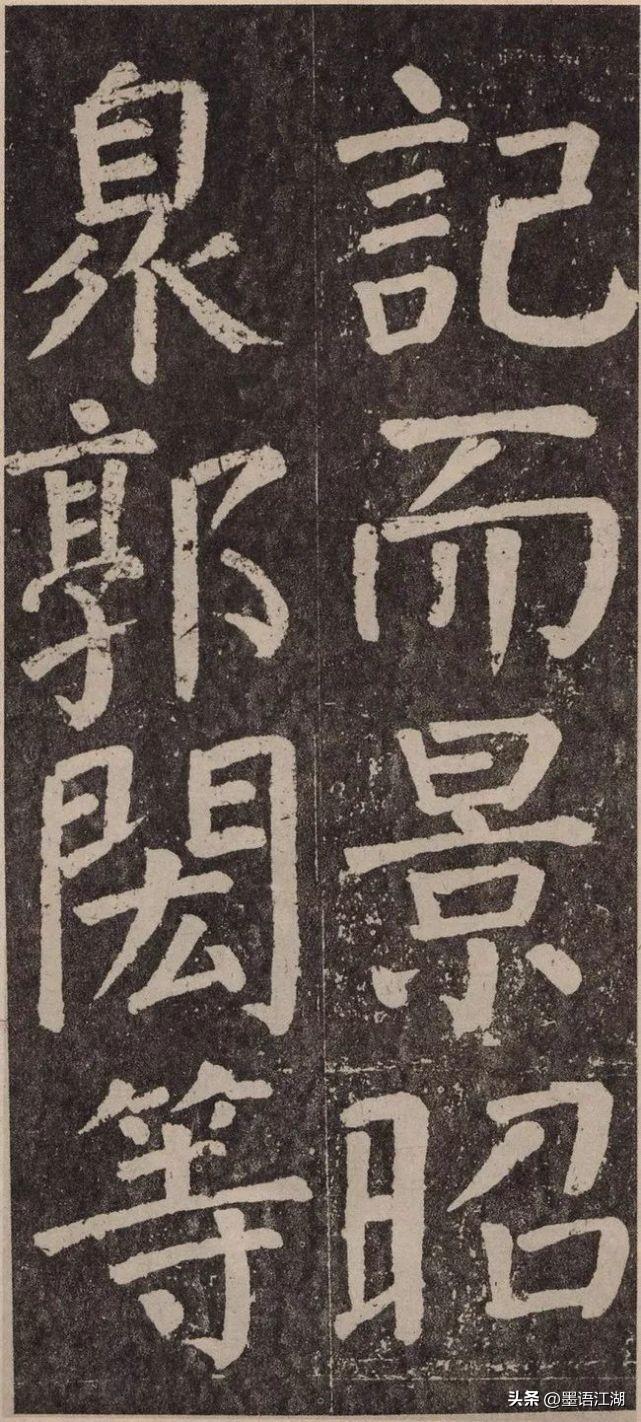 記而景昭
臮郭閎等
头条 @墨语江湖